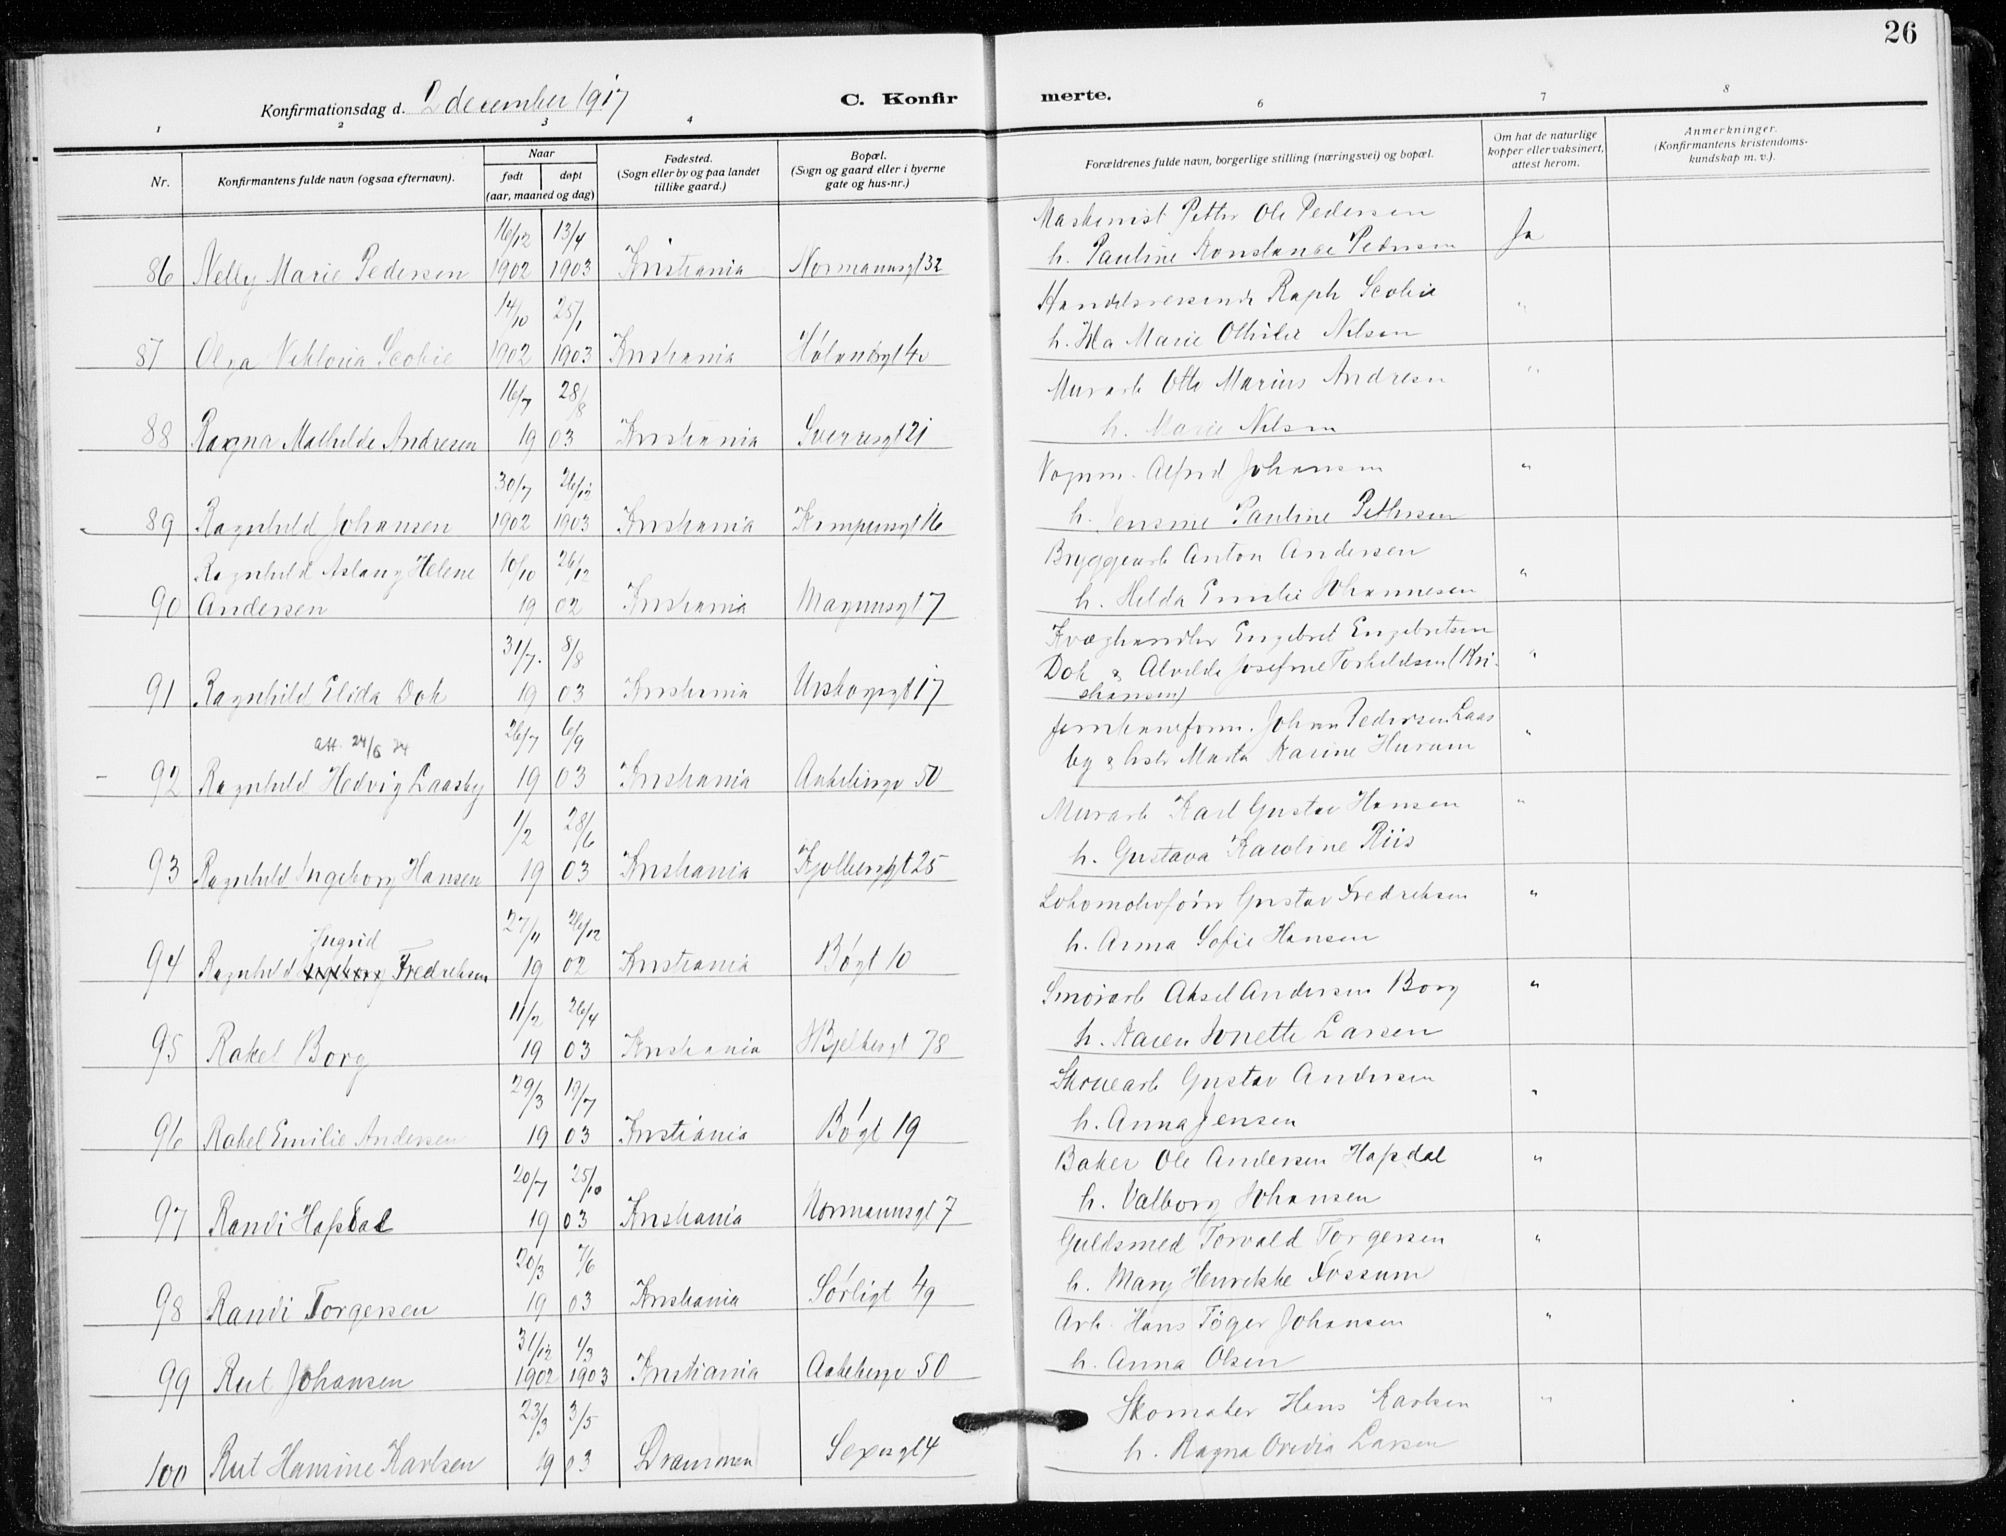 26
Konfirmationsdag d. 2 december 1917
C. Konfir
merte.
1 2 3 4 6 7 8
Nr.
Konfirmantens fulde navn (ogsaa efternavn).
Naar
født døpt
(aar, maaned og dag)
Fødested.
(Sogn eller by og paa landet
tillike gaard.)
Bopæl.
(Sogn og gaard eller i byerne
gate og hus-nr.)
Forældrenes fulde navn, borgerlige stilling (næringsvei) og bopæl.
Om hat de naturlige
kopper eller vaksinert,
attest herom.
Anmerkninger.
(Konfirmantens kristendoms-
kundskap m. v.).
16/12 13/4 Maskinist Petter Ole Pedersen
86 Nelly Marie Pedersen 1902 1903 Kristiania Normannsgt 32 h. Pauline Konstanse Pedersen Ja
14/10 25/1 Handelsreisende Raph Scobie
87 Olga Viktoria Scobie 1902 1903 Kristiania Hølandsgt 40 h. Ida Marie Othilie Nilsen "
16/7 28/8 Murarb Otto Marius Andresen
88 Ragna Mathilde Andresen 19 03 Kristiania Sverresgt 21 h. Marie Nilsen "
30/7 26/12 Vognm. Alfred Johansen
89 Ragnhild Johansen 1902 1903 Kristiania Kampensgt 16 h. Jensine Pauline Pettersen "
Ragnhild Aslaug Helene 10/10 26/12 Bryggearb Anton Andersen
90 Andersen 19 02 Kristiania Magnusgt 7 h. Hilda Emilie Johannesen "
31/7. 8/8 Kvæghandler Engebret Engebretsen
91 Ragnhild Elida Dok 19 03 Kristiania Urskogsgt 17 Dok & Alvilde Josefine Torkildsen (Kri-
stiansen) "
att. 24/6 34 26/7 6/9 Jernbaneform. Johan Pedersen Laas
92 Ragnhild Hedvig Laasby 19 03 Kristiania Aakebergv 50 by & hstr Marta Karine Hurum "
1/2 28/6 Murarb Karl Gustav Hansen
93 Ragnhild Ingeborg Hansen 19 03 Kristiania Kjølberggt 25 h. Gustava Karoline Riis "
Ingrid 27/11 26/12 Lokomotivfører Gustav Fredriksen
94 Ragnhild Ingeborg Fredriksen 19 02 Kristiania Bøgt 10 h. Anna Sofie Hansen "
11/2 26/4 Smørarb Aksel Andersen Borg
95 Rakel Borg 19 03 Kristiania Hjelbergt 78 h. Karen Jonette Larsen "
29/3 19/7 Skouearb Gustav Andersen
96 Rakel Emilie Andersen 19 03 Kristiania Bøgt 19 h. Anna Jensen "
20/7 25/10 Baker Ole Andersen Hafsdal
97 Randi Hafsdal 19 03 Kristiania Normannsgt 7 h. Valborg Johansen "
20/3 7/6 Guldsmed Torvald Torgersen
98 Randi Torgersen 19 03 Kristiania Sørligt 49 h. Mary Henrikke Fossum "
31/12 1/3 Arb. Hans Tøger Johansen
99 Rut Johansen 1902 1903 Kristiania Aakebergv 50 h. Anna Olsen "
23/3 3/5 Skomaker Hans Karlsen
100 Rut Hamine Karlsen 19 03 Drammen Sexesgt 4 h. Ragna Ovidia Larsen "